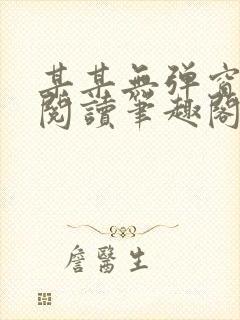 某某無弹窗
閱讀筆趣閣
詹醫生